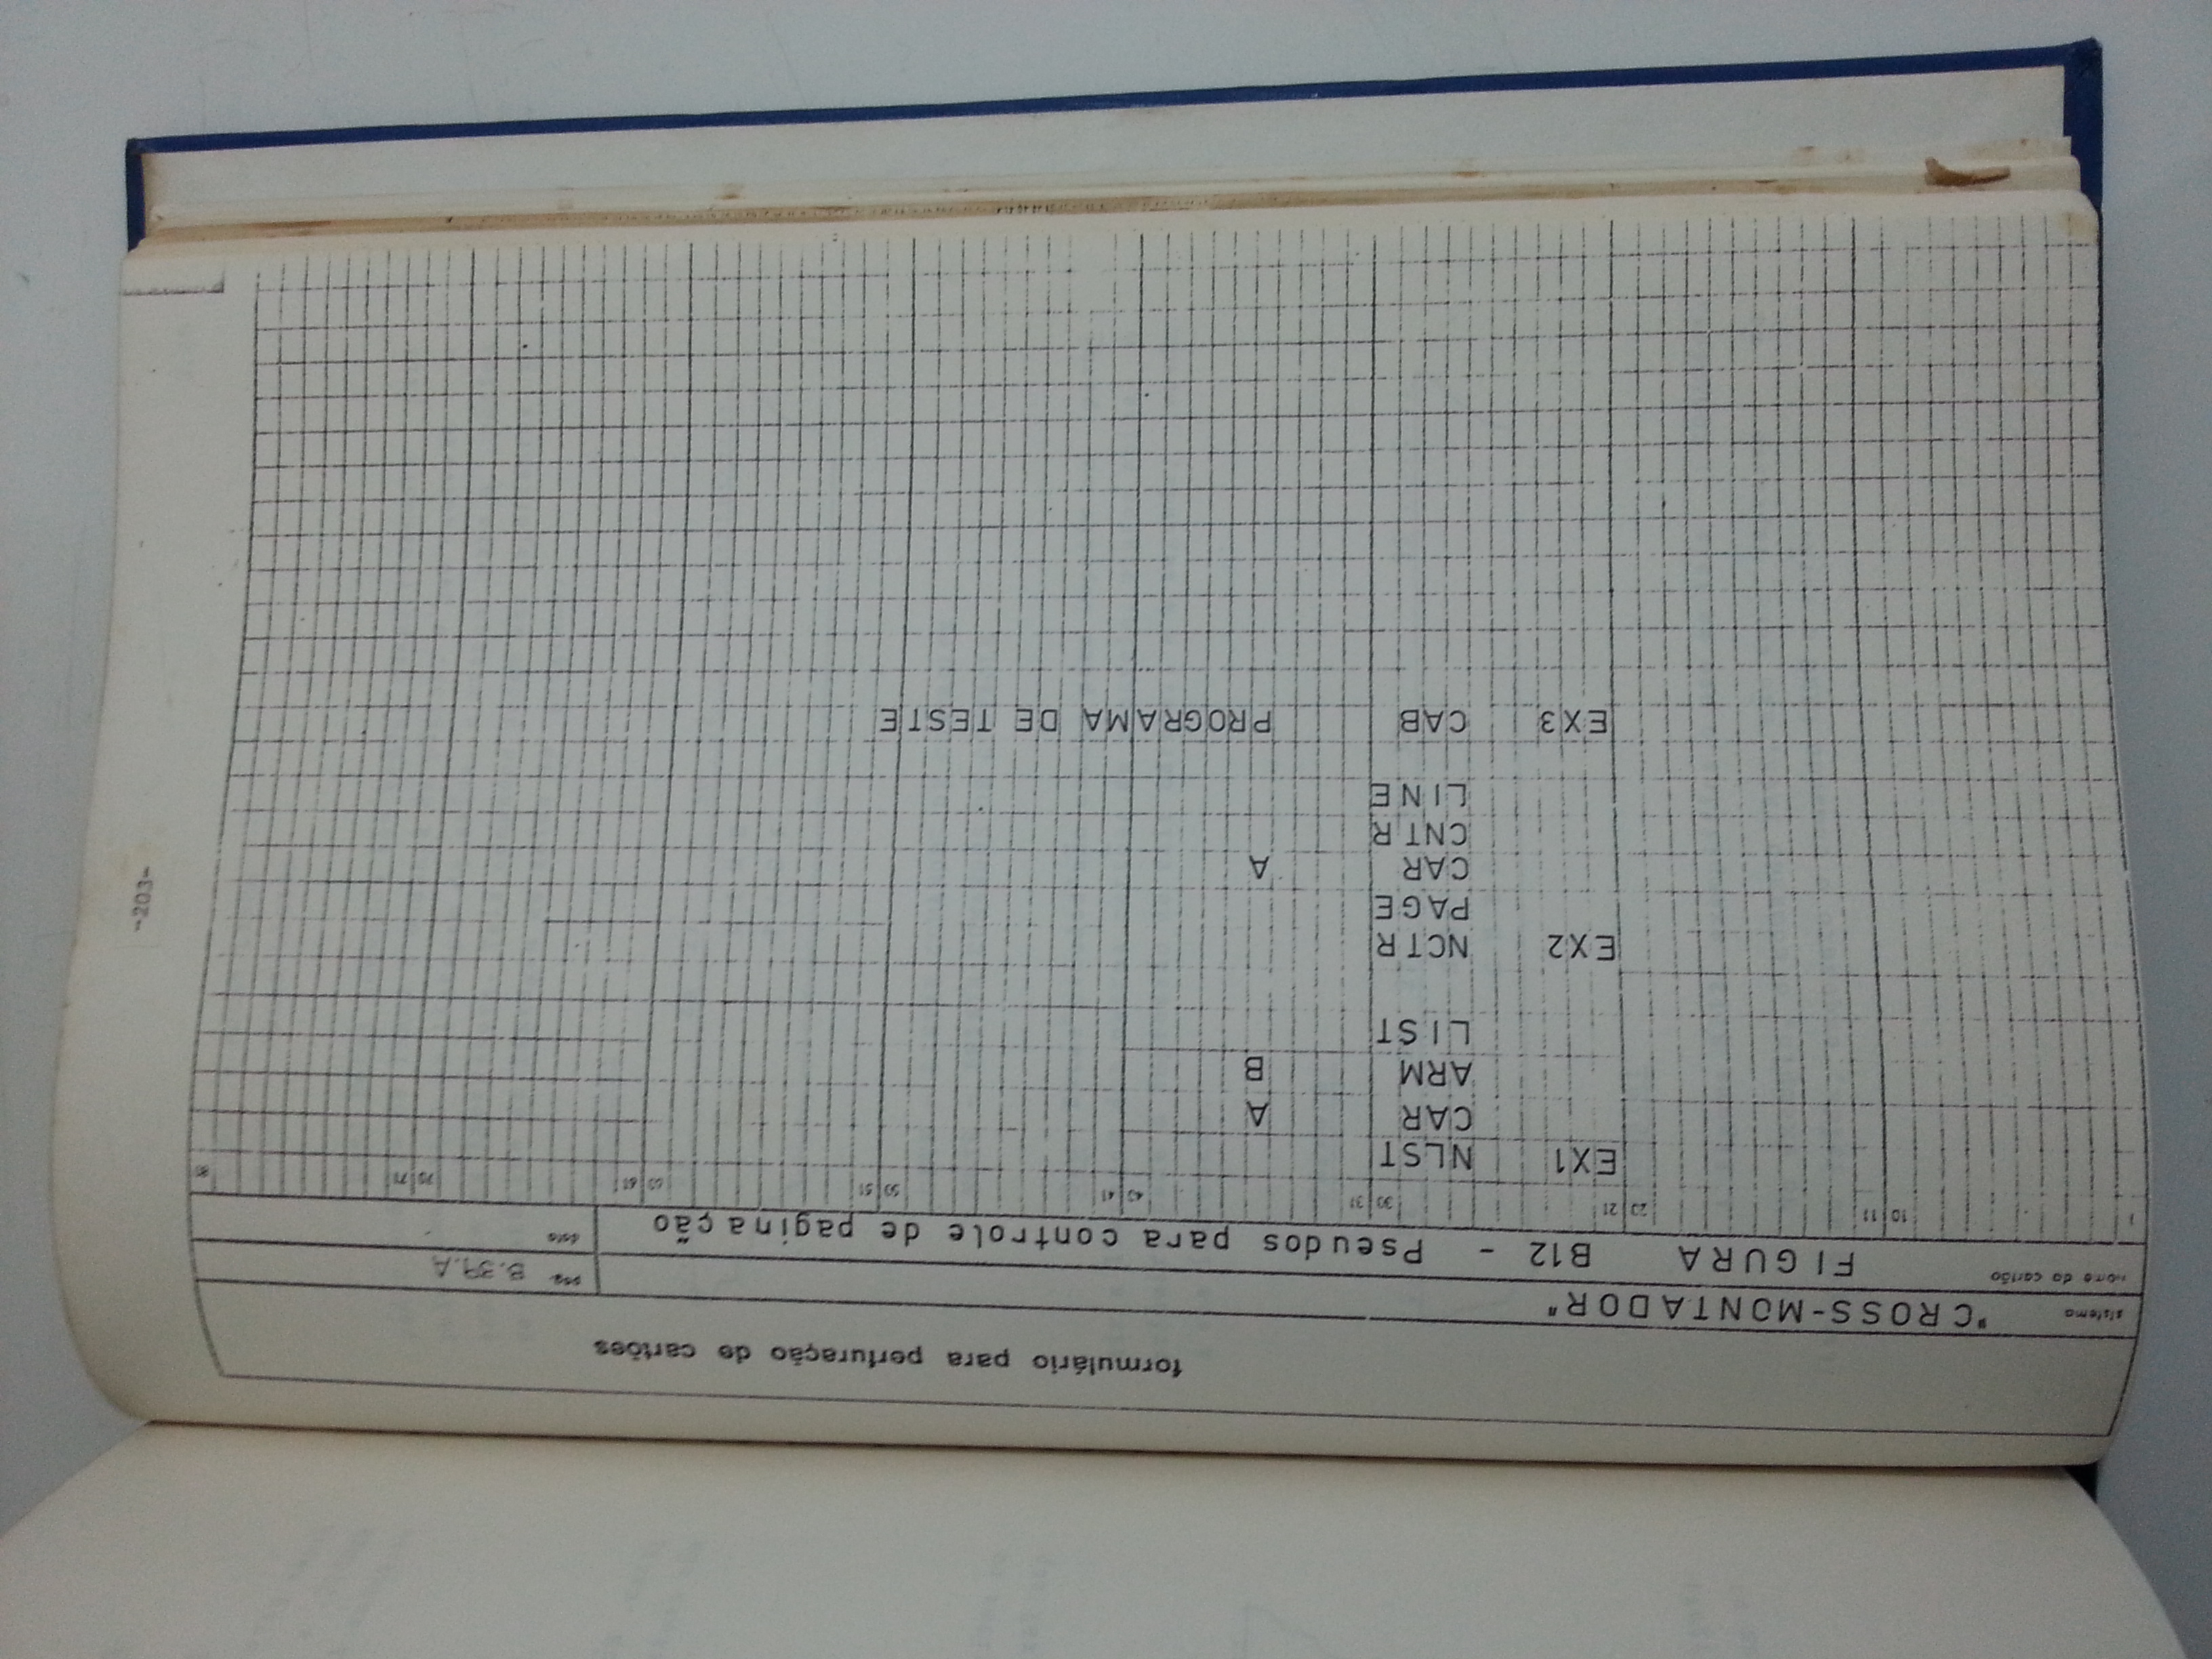 -203-
formulário para perfuração de cartões
sistema "CROSS-MONTADOR" pág. B.39.A
nome do cartão FIGURA B12 - Pseudos para controle de paginação data
1 10 11 20 21 30 31 40 41 50 51 60 61 70 71 80
EX1 NLST
CAR A
ARM B
LIST
EX2 NCTR
PAGE
CAR A
CNTR
LINE
EX3 CAB PROGRAMA DE TESTE